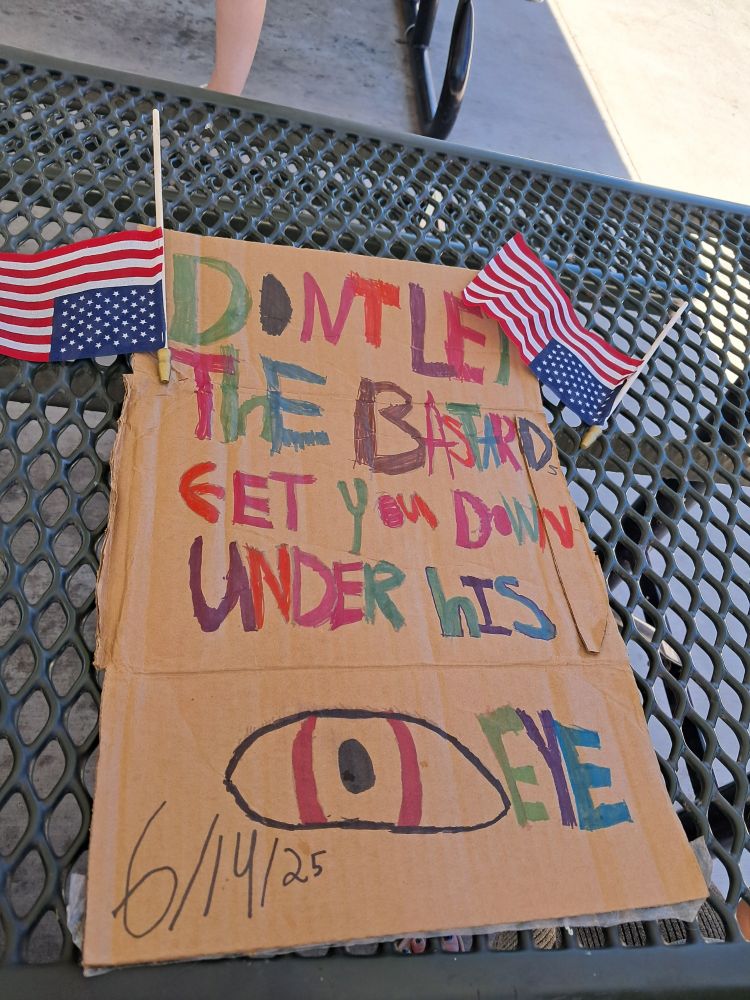 DONT LET
ThE BASTARDs
GET you DOWN
UNDER hIS
EYE
6/14/25